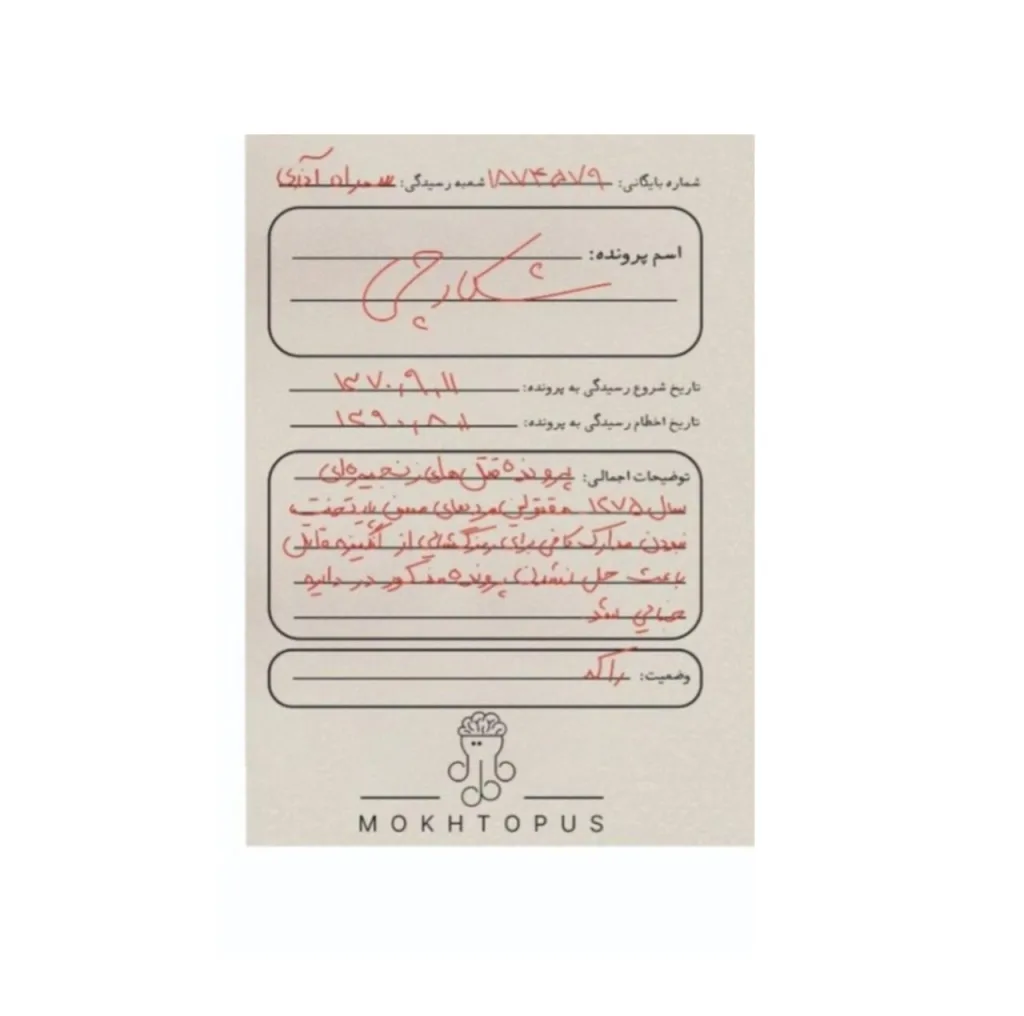 شماره بایگانی: ۱۸۷۴۵۷۹ شعبه رسیدگی: سه راه آذری
اسم پرونده:
شکارچی
تاریخ شروع رسیدگی به پرونده: ۱۳۷۰,۹,۱۱
تاریخ اخطام رسیدگی به پرونده: ۱۳۹۰,۸,۱۱
توضیحات اجمالی: پرونده قتل های زنجیره ای
سال ۱۳۷۵ مقتولین مردهای مسن پایتخت
نبودن مدارک کافی برای رمزگشایی از انگیزه قاتل
باعث حل نشدن پرونده مذکور در دایره
جنایی شد
وضعیت: راکد
MOKHTOPUS